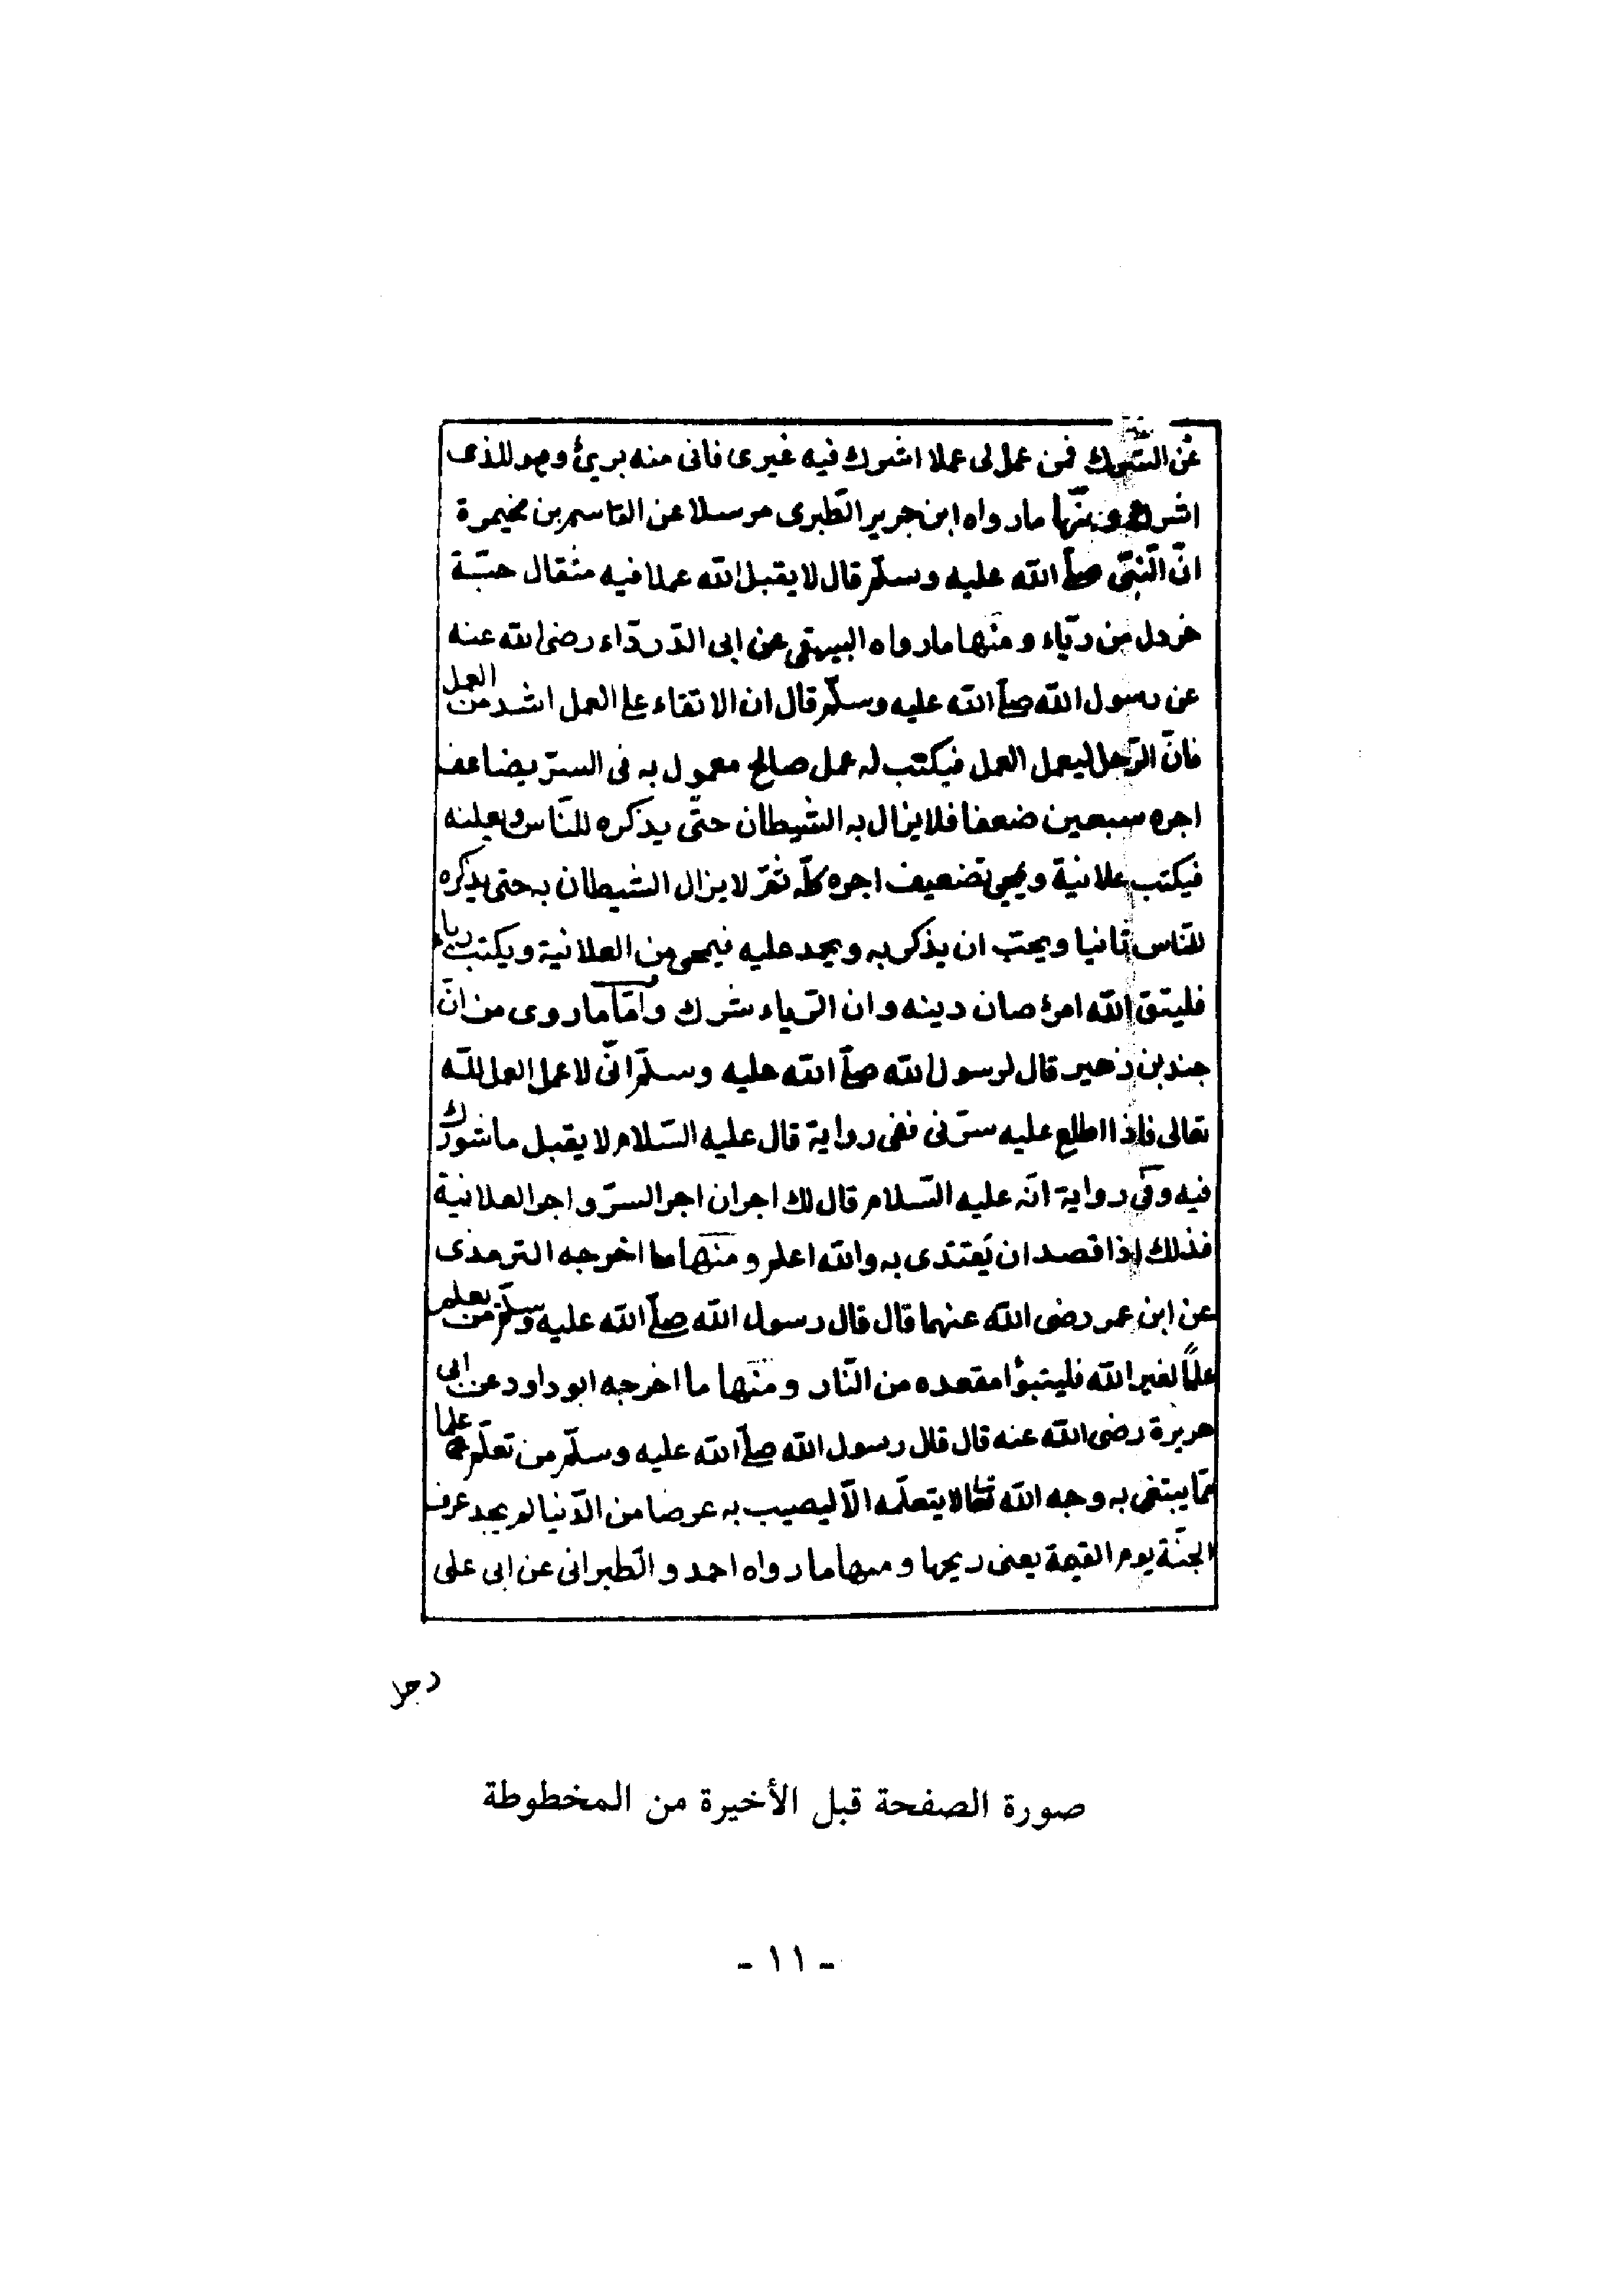 عن الشرك فمن عمل لى عملا اشرك فيه غيرى فانى منه برئ وهو للذى
اشرك ومنها ما رواه ابن جرير الطبرى مرسلا عن القاسم بن مخيمرة
انّ النّبىّ صلّى الله عليه وسلّم قال لا يقبل الله عملا فيه مثقال حبّة
خردل من ريّاء ومنها ما رواه البيهقى عن ابى الدّردّاء رضى الله عنه
عن رسول الله صلّى الله عليه وسلّم قال ان الاتقاء على العمل اشد من العمل
فانّ الرّجل ليعمل العمل فيكتب له عمل صالح معمول به فى السرّ يضاعف
اجره سبعين ضعفا فلا يزال به الشيطان حتّى يذكره للنّاس ويعلنه
فيكتب علانية ويمحى تضعيف اجره كلّه ثمّ لا يزال الشيطان به حتى يذكره
للنّاس ثانيا ويحبّ ان يذكر به ويحمد عليه فيمحى من العلانية ويكتب رياء
فليتق الله امرئ صان دينه وان الرّياء شرك وامّا ما روى من انّ
جندب بن زهير قال لرسول الله صلّى الله عليه وسلّم انّى لاعمل العمل للّه
تعالى فاذا اطلع عليه سرّنى ففى رواية قال عليه السّلام لا يقبل ما شورك
فيه وفى رواية انّه عليه السّلام قال لك اجران اجر السرّ واجر العلانية
فذلك اذا قصد ان يُقتدى به والله اعلم ومنها ما اخرجه الترمذى
عن ابن عمر رضى الله عنهما قال قال رسول الله صلّى الله عليه وسلّم من يعلم
علمًا لغير الله فليتبوّأ مقعده من النّار ومنها ما اخرجه ابو داود عن ابى
هريرة رضى الله عنه قال قال رسول الله صلّى الله عليه وسلّم من تعلّم علما
ممّا يبتغى به وجه الله تعالى لا يتعلّمه الّا ليصيب به عرضا من الدّنيا لم يجد عرف
الجنّة يوم القيمة يعنى ريحها ومنها ما رواه احمد والطّبرانى عن ابى على
رجل
صورة الصفحة قبل الأخيرة من المخطوطة
- ١١ -